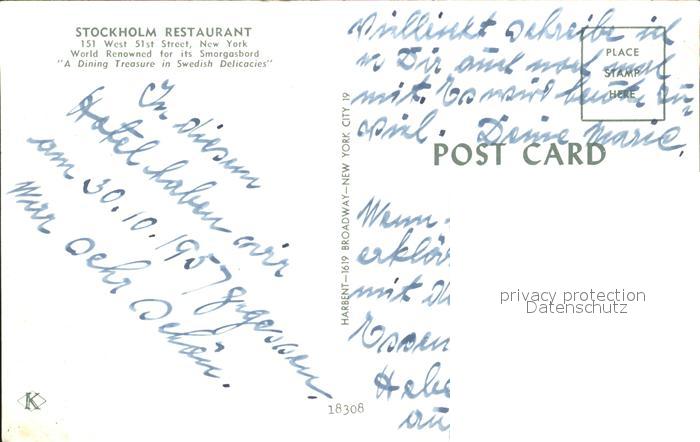 STOCKHOLM RESTAURANT
151 West 51st Street, New York
World Renowned for its Smorgasbord
"A Dining Treasure in Swedish Delicacies"
In diesem
Hotel haben wir
am 30.10.1957 gegessen.
War sehr schön.
HARBENT—1619 BROADWAY—NEW YORK CITY 19
18308
K
Vielleicht schreibe ich
Dir auch noch mal
mit. Es wird heute zu
viel. Deine Marie.
PLACE
STAMP
HERE
POST CARD
Wenn
erklär
mit
Essen
Habe
privacy protection
Datenschutz